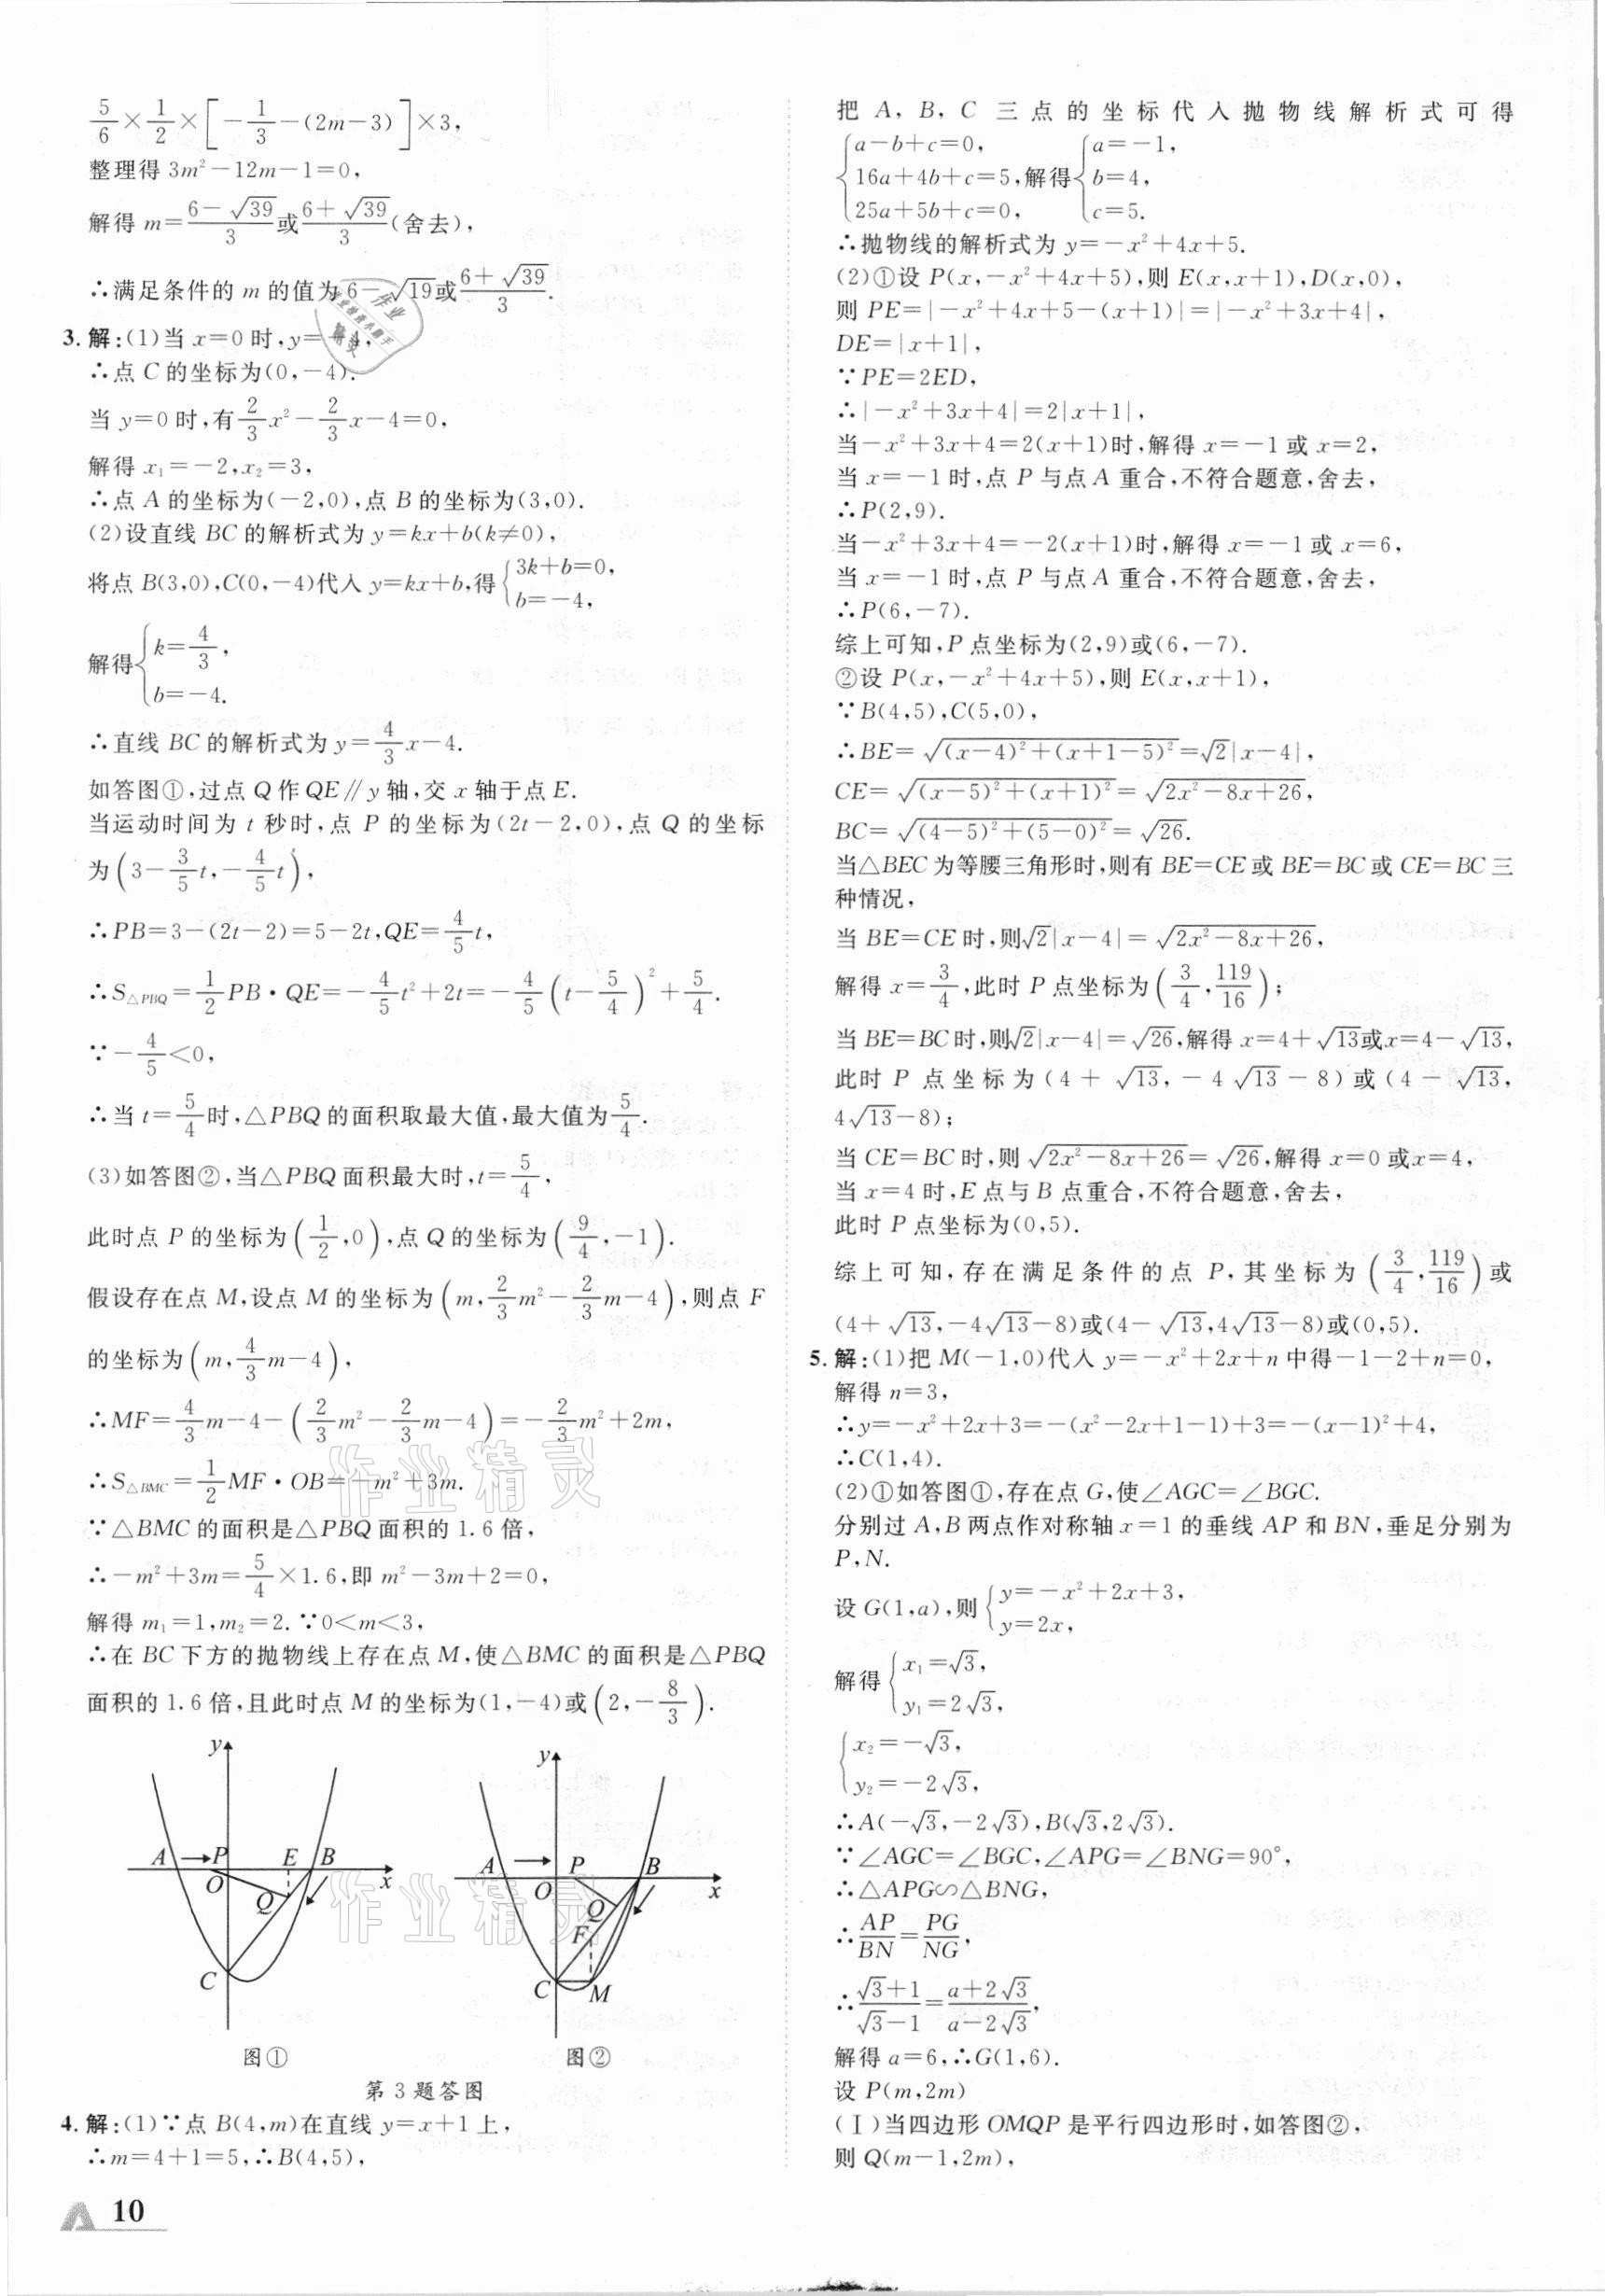 5/6×1/2×[-1/3-(2m-3)]×3,
整理得 3m²-12m-1=0,
解得 m=(6-√39)/3或(6+√39)/3(舍去),
∴满足条件的 m 的值为 6-√19或(6+√39)/3.
3. 解:(1)当 x=0 时,y=-4,
∴点 C 的坐标为(0,-4).
当 y=0 时,有2/3x²-2/3x-4=0,
解得 x₁=-2,x₂=3,
∴点 A 的坐标为(-2,0),点 B 的坐标为(3,0).
(2)设直线 BC 的解析式为 y=kx+b(k≠0),
将点 B(3,0),C(0,-4)代入 y=kx+b,得{3k+b=0, b=-4,
解得{k=4/3, b=-4.
∴直线 BC 的解析式为 y=4/3x-4.
如答图①,过点 Q 作 QE∥y 轴,交 x 轴于点 E.
当运动时间为 t 秒时,点 P 的坐标为(2t-2,0),点 Q 的坐标
为(3-3/5t,-4/5t),
∴PB=3-(2t-2)=5-2t,QE=4/5t,
∴S△PBQ=1/2PB·QE=-4/5t²+2t=-4/5(t-5/4)²+5/4.
∵-4/5<0,
∴当 t=5/4时,△PBQ 的面积取最大值,最大值为5/4.
(3)如答图②,当△PBQ 面积最大时,t=5/4,
此时点 P 的坐标为(1/2,0),点 Q 的坐标为(9/4,-1).
假设存在点 M,设点 M 的坐标为(m,2/3m²-2/3m-4),则点 F
的坐标为(m,4/3m-4),
∴MF=4/3m-4-(2/3m²-2/3m-4)=-2/3m²+2m,
∴S△BMC=1/2MF·OB=-m²+3m.
∵△BMC 的面积是△PBQ 面积的 1.6 倍,
∴-m²+3m=5/4×1.6,即 m²-3m+2=0,
解得 m₁=1,m₂=2.∵0<m<3,
∴在 BC 下方的抛物线上存在点 M,使△BMC 的面积是△PBQ
面积的 1.6 倍,且此时点 M 的坐标为(1,-4)或(2,-8/3).
y A P E B O x Q C
图①
y A P B O x Q F C M
图②
第 3 题答图
4. 解:(1)∵点 B(4,m)在直线 y=x+1 上,
∴m=4+1=5,∴B(4,5),
10
把 A, B, C 三点的坐标代入抛物线解析式可得
{a-b+c=0, 16a+4b+c=5, 25a+5b+c=0, 解得{a=-1, b=4, c=5.
∴抛物线的解析式为 y=-x²+4x+5.
(2)①设 P(x,-x²+4x+5),则 E(x,x+1),D(x,0),
则 PE=|-x²+4x+5-(x+1)|=|-x²+3x+4|,
DE=|x+1|,
∵PE=2ED,
∴|-x²+3x+4|=2|x+1|,
当-x²+3x+4=2(x+1)时,解得 x=-1 或 x=2,
当 x=-1 时,点 P 与点 A 重合,不符合题意,舍去,
∴P(2,9).
当-x²+3x+4=-2(x+1)时,解得 x=-1 或 x=6,
当 x=-1 时,点 P 与点 A 重合,不符合题意,舍去,
∴P(6,-7).
综上可知,P 点坐标为(2,9)或(6,-7).
②设 P(x,-x²+4x+5),则 E(x,x+1),
∵B(4,5),C(5,0),
∴BE=√((x-4)²+(x+1-5)²)=√2|x-4|,
CE=√((x-5)²+(x+1)²)=√(2x²-8x+26),
BC=√((4-5)²+(5-0)²)=√26.
当△BEC 为等腰三角形时,则有 BE=CE 或 BE=BC 或 CE=BC 三
种情况,
当 BE=CE 时,则√2|x-4|=√(2x²-8x+26),
解得 x=3/4,此时 P 点坐标为(3/4,119/16);
当 BE=BC 时,则√2|x-4|=√26,解得 x=4+√13或x=4-√13,
此时 P 点坐标为(4+√13,-4√13-8)或(4-√13,
4√13-8);
当 CE=BC 时,则√(2x²-8x+26)=√26,解得 x=0 或x=4,
当 x=4 时,E 点与 B 点重合,不符合题意,舍去,
此时 P 点坐标为(0,5).
综上可知,存在满足条件的点 P,其坐标为(3/4,119/16)或
(4+√13,-4√13-8)或(4-√13,4√13-8)或(0,5).
5. 解:(1)把 M(-1,0)代入 y=-x²+2x+n 中得-1-2+n=0,
解得 n=3,
∴y=-x²+2x+3=-(x²-2x+1-1)+3=-(x-1)²+4,
∴C(1,4).
(2)①如答图①,存在点 G,使∠AGC=∠BGC.
分别过 A,B 两点作对称轴 x=1 的垂线 AP 和 BN,垂足分别为
P,N.
设 G(1,a),则{y=-x²+2x+3, y=2x,
解得{x₁=√3, y₁=2√3,
{x₂=-√3, y₂=-2√3,
∴A(-√3,-2√3),B(√3,2√3).
∵∠AGC=∠BGC,∠APG=∠BNG=90°,
∴△APG∽△BNG,
∴AP/BN=PG/NG,
∴(√3+1)/(√3-1)=(a+2√3)/(a-2√3),
解得 a=6,∴G(1,6).
设 P(m,2m)
(Ⅰ)当四边形 OMQP 是平行四边形时,如答图②,
则 Q(m-1,2m),
作业精灵
作业精灵